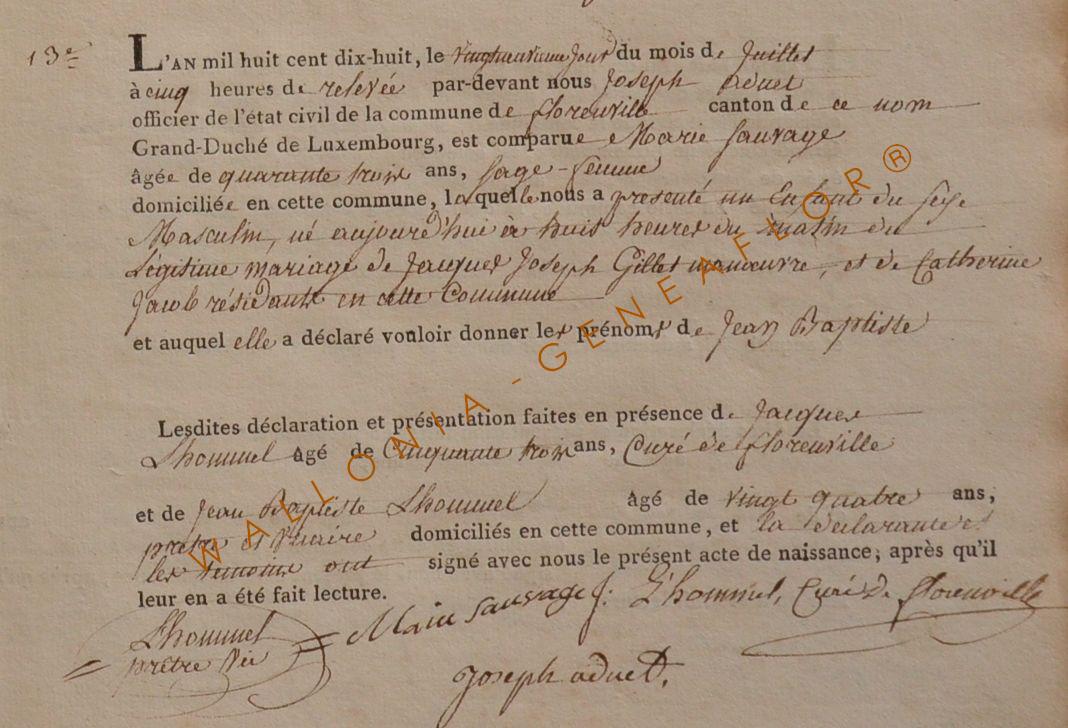 13e
L'AN mil huit cent dix-huit, le vingtneuvieme jour du mois de Juillet
à cinq heures de relevée par-devant nous Joseph aduet
officier de l'état civil de la commune de florenville canton de ce nom
Grand-Duché de Luxembourg, est comparue Marie Sauvage
âgée de quarante trois ans, sage-femme
domiciliée en cette commune, laquelle nous a presenté un Enfant du sexe
Masculin, né aujourd'hui à huit heures du matin du
Légitime mariage de Jacques Joseph Gillet manœuvre, et de Catherine
Jacob résidants en cette Commune
et auquel elle a déclaré vouloir donner les prénoms de Jean Baptiste
Lesdites déclaration et présentation faites en présence de Jacques
Lhommel âgé de Cinquante trois ans, Curé de florenville
et de Jean Baptiste Lhommel âgé de vingt quatre ans,
pretre et vicaire domiciliés en cette commune, et la declarante et
les temoins ont signé avec nous le présent acte de naissance; après qu'il
leur en a été fait lecture.
Marie Sauvage J: L'hommel, Curé de florenville
Lhommel
prêtre vic
Joseph aduet.
WALLONIA-GENEAFLOR®